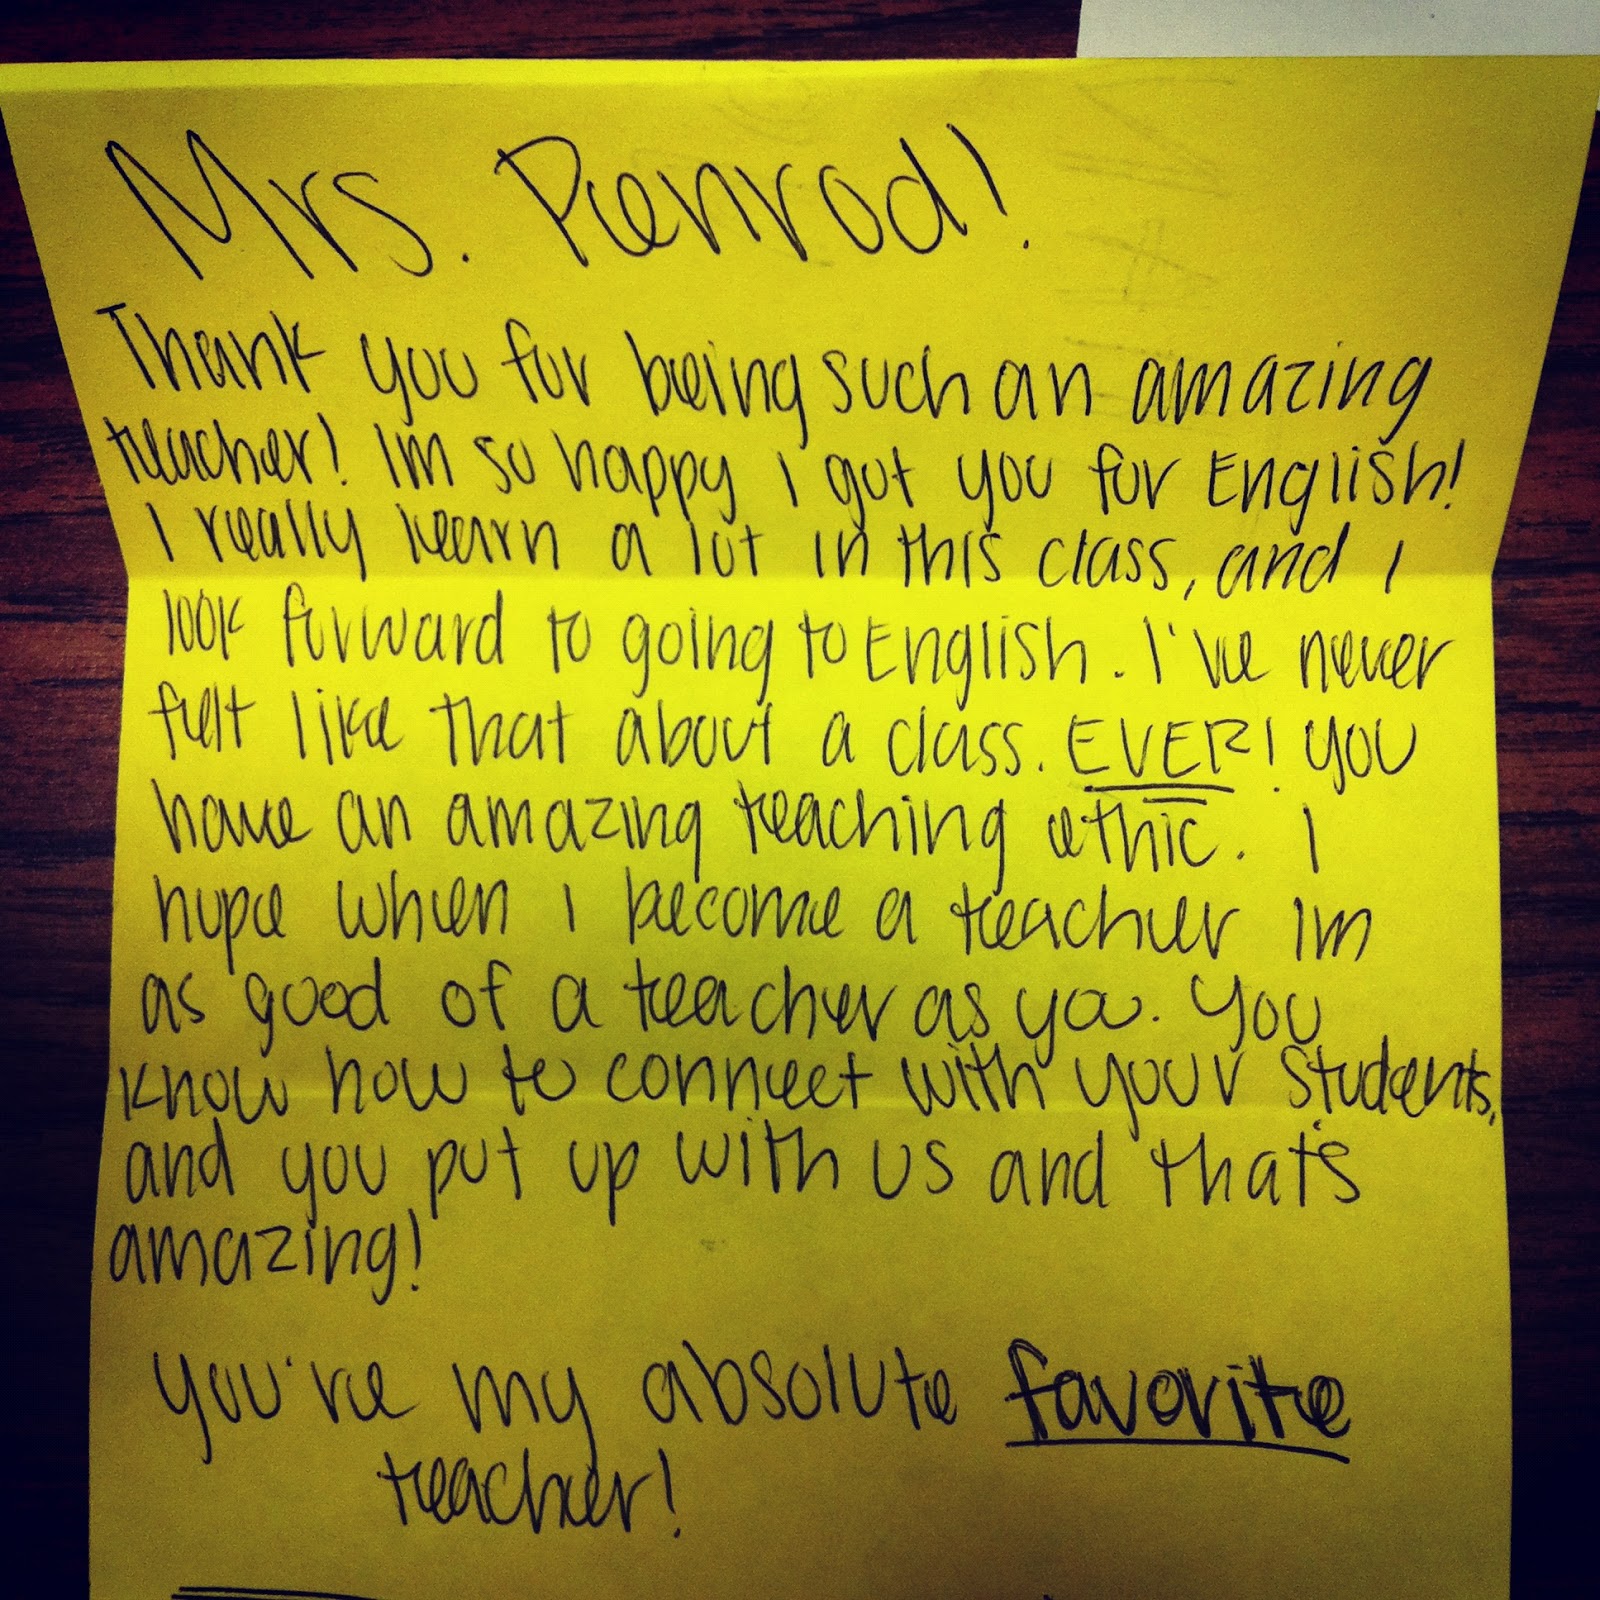 Mrs. Penrod!
Thank you for being such an amazing
teacher! Im so happy I got you for English!
I really learn a lot in this class, and I
look forward to going to English. I've never
felt like that about a class. EVER! You
have an amazing teaching ethic. I
hope when I become a teacher Im
as good of a teacher as you. You
know how to connect with your students,
and you put up with us and that's
amazing!
You're my absolute favorite
teacher!